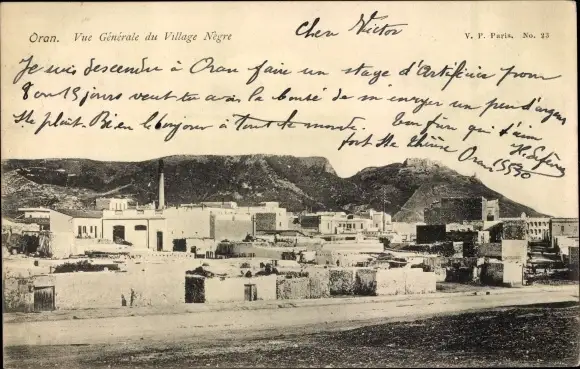 Oran. Vue Générale du Village Nègre
V. P. Paris. No. 23
Cher Victor
Je suis descendu à Oran faire un stage d'Artificier pour
8 ou 15 jours veut tu avoir la bonté de m envoyer un peu d'argent
Ste plait. Bien le bonjour à tout le monde. Ton frère qui t'aim
fort Ste Thérèse Oran